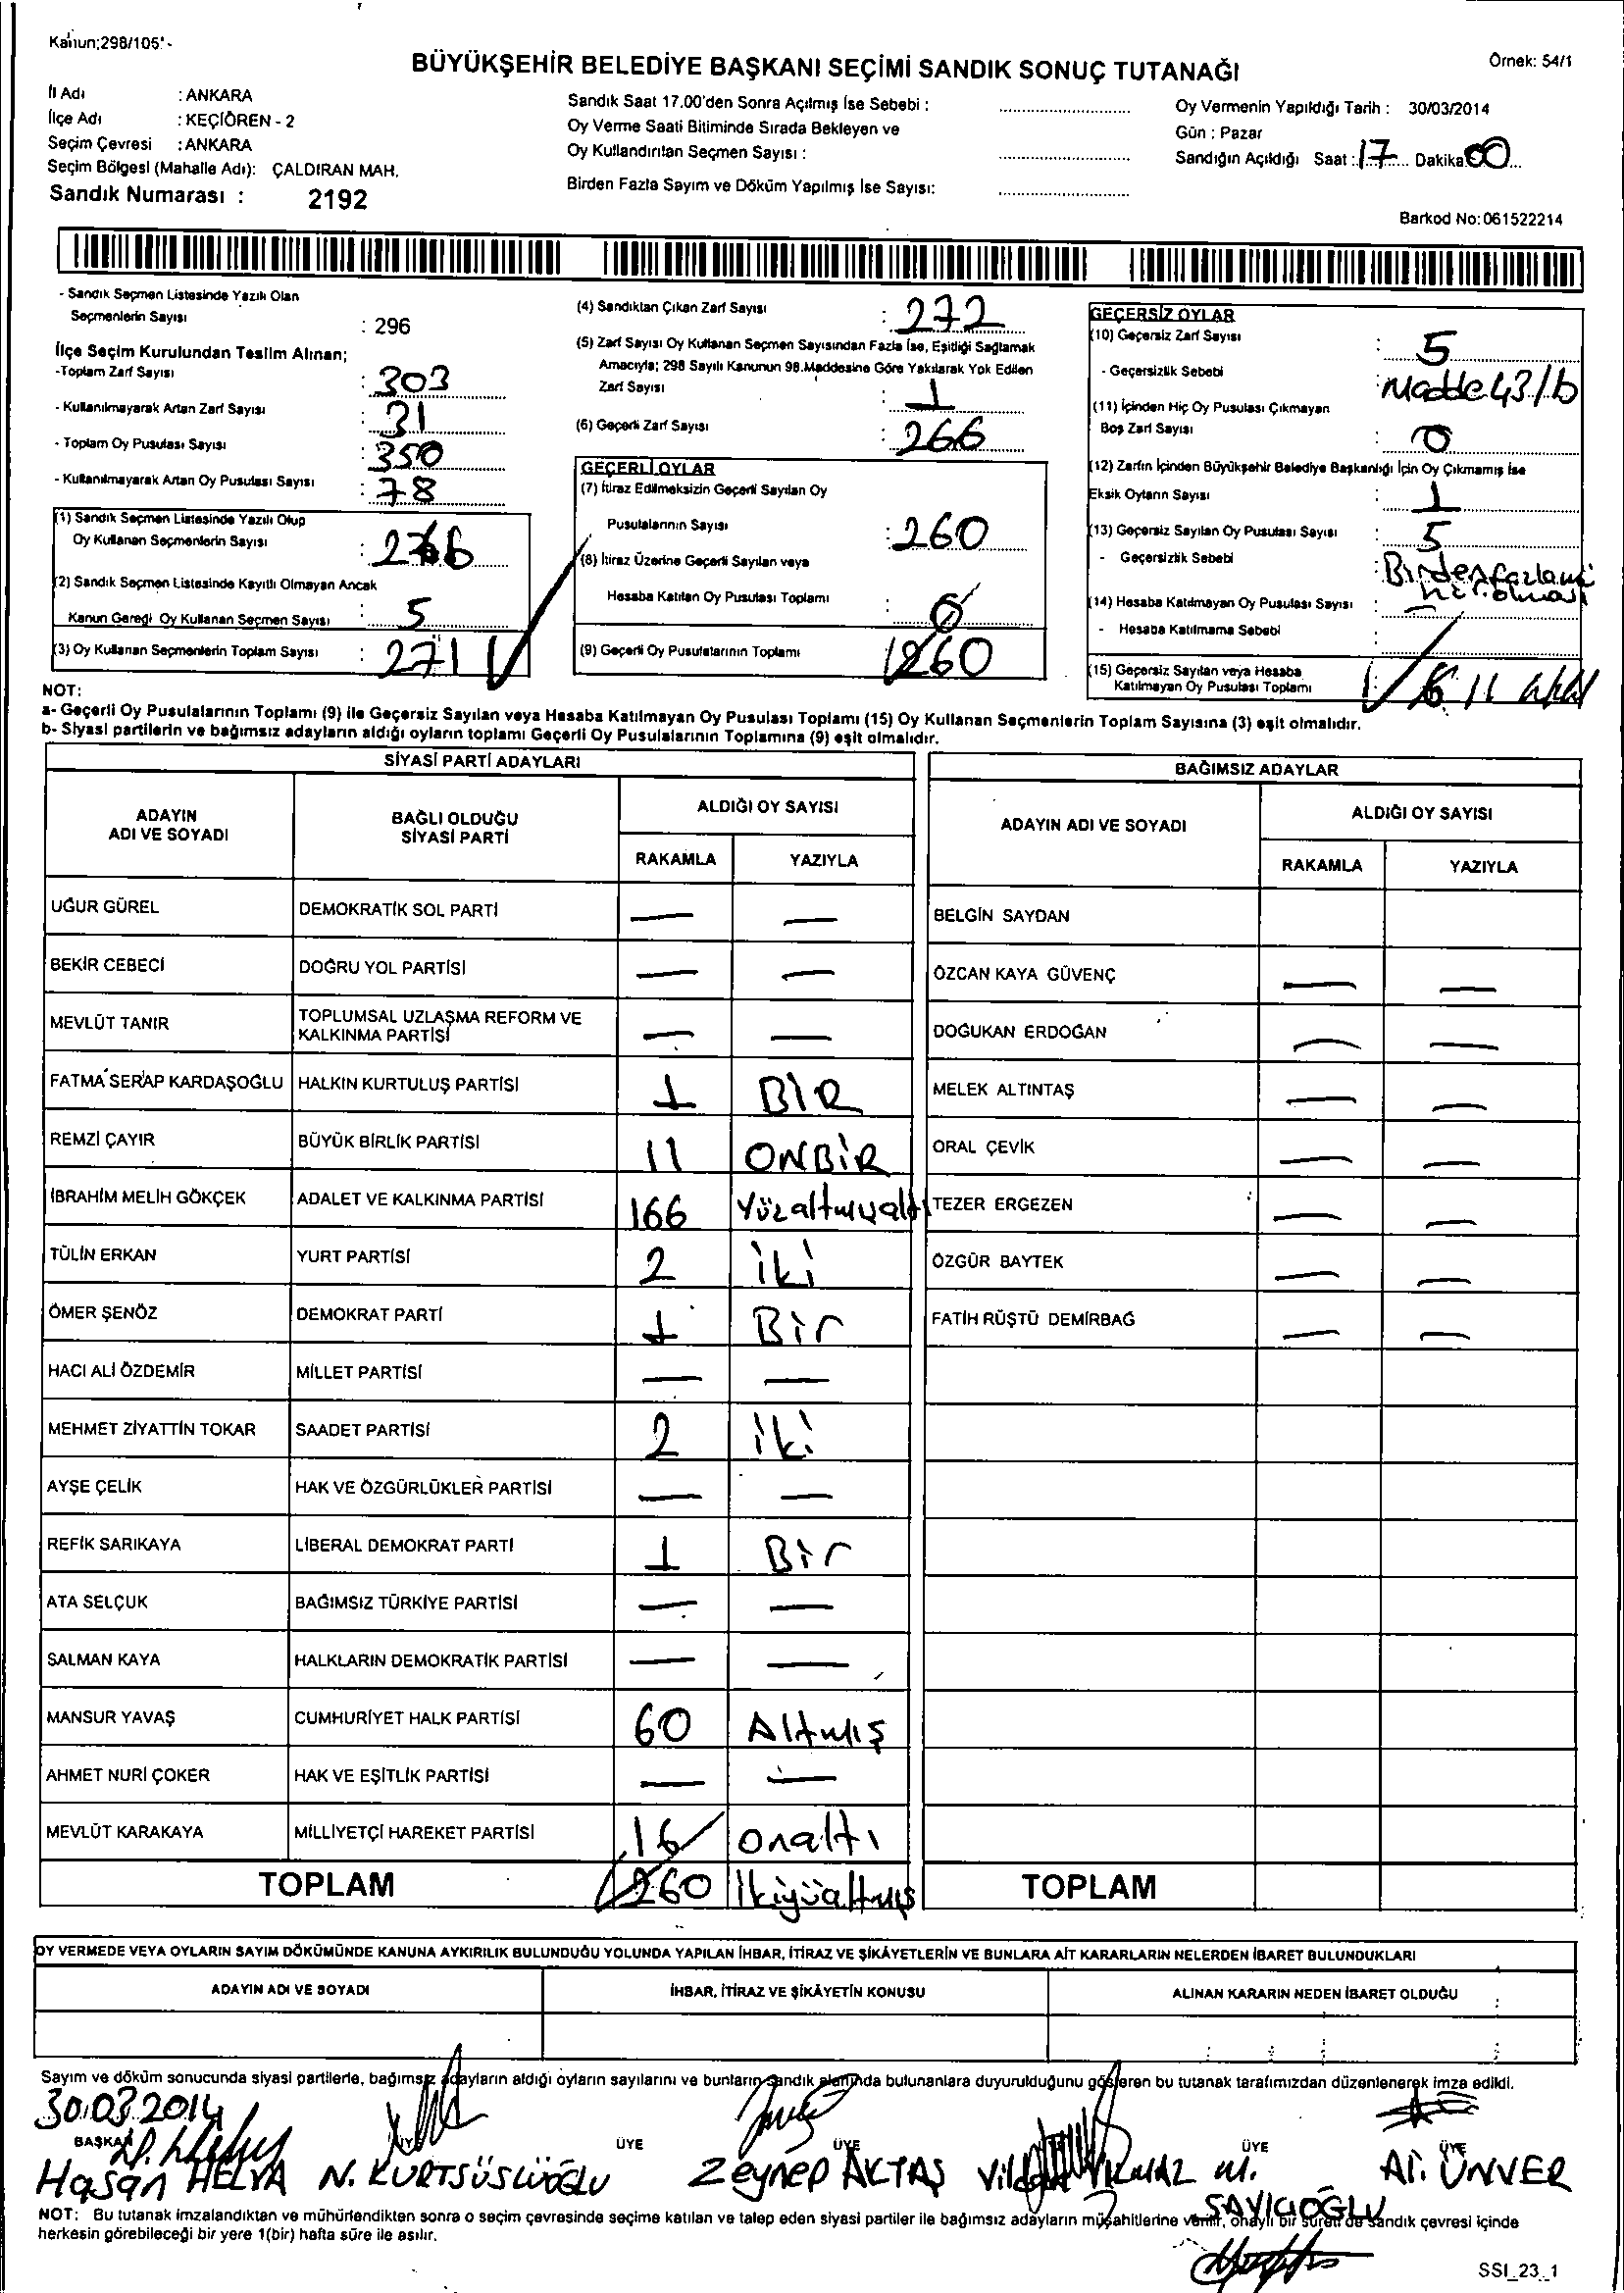 Kanun;298/105'-
BÜYÜKŞEHİR BELEDİYE BAŞKANI SEÇİMİ SANDIK SONUÇ TUTANAĞI
Örnek: 54/1
İl Adı : ANKARA
İlçe Adı : KEÇİÖREN - 2
Seçim Çevresi : ANKARA
Seçim Bölgesi (Mahalle Adı): ÇALDIRAN MAH.
Sandık Numarası : 2192
Sandık Saat 17.00'den Sonra Açılmış İse Sebebi :
Oy Verme Saati Bitiminde Sırada Bekleyen ve
Oy Kullandırılan Seçmen Sayısı :
Birden Fazla Sayım ve Döküm Yapılmış İse Sayısı:
Oy Vermenin Yapıldığı Tarih : 30/03/2014
Gün : Pazar
Sandığın Açıldığı Saat : 17 Dakika 00
Barkod No: 061522214
- Sandık Seçmen Listesinde Yazılı Olan
Seçmenlerin Sayısı : 296
İlçe Seçim Kurulundan Teslim Alınan;
-Toplam Zarf Sayısı : 303
- Kullanılmayarak Artan Zarf Sayısı : 31
- Toplam Oy Pusulası Sayısı : 350
- Kullanılmayarak Artan Oy Pusulası Sayısı : 78
(1) Sandık Seçmen Listesinde Yazılı Olup
Oy Kullanan Seçmenlerin Sayısı : 266
(2) Sandık Seçmen Listesinde Kayıtlı Olmayan Ancak
Kanun Gereği Oy Kullanan Seçmen Sayısı : 5
(3) Oy Kullanan Seçmenlerin Toplam Sayısı : 271
(4) Sandıktan Çıkan Zarf Sayısı : 272
(5) Zarf Sayısı Oy Kullanan Seçmen Sayısından Fazla İse, Eşitliği Sağlamak
Amacıyla; 298 Sayılı Kanunun 98.Maddesine Göre Yakılarak Yok Edilen
Zarf Sayısı : 1
(6) Geçerli Zarf Sayısı : 266
GEÇERLİ OYLAR
(7) İtiraz Edilmeksizin Geçerli Sayılan Oy
Pusulalarının Sayısı : 260
(8) İtiraz Üzerine Geçerli Sayılan veya
Hesaba Katılan Oy Pusulası Toplamı : 0
(9) Geçerli Oy Pusulalarının Toplamı 260
GEÇERSİZ OYLAR
(10) Geçersiz Zarf Sayısı : 5
- Geçersizlik Sebebi : Madde 43/b
(11) İçinden Hiç Oy Pusulası Çıkmayan
Boş Zarf Sayısı : 0
(12) Zarfın İçinden Büyükşehir Belediye Başkanlığı İçin Oy Çıkmamış İse
Eksik Oyların Sayısı : 1
(13) Geçersiz Sayılan Oy Pusulası Sayısı : 5
- Geçersizlik Sebebi : Birden fazla
olması
(14) Hesaba Katılmayan Oy Pusulası Sayısı : —
- Hesaba Katılmama Sebebi :
(15) Geçersiz Sayılan veya Hesaba
Katılmayan Oy Pusulası Toplamı : 11
NOT:
a- Geçerli Oy Pusulalarının Toplamı (9) ile Geçersiz Sayılan veya Hesaba Katılmayan Oy Pusulası Toplamı (15) Oy Kullanan Seçmenlerin Toplam Sayısına (3) eşit olmalıdır.
b- Siyasi partilerin ve bağımsız adayların aldığı oyların toplamı Geçerli Oy Pusulalarının Toplamına (9) eşit olmalıdır.
SİYASİ PARTİ ADAYLARI
ADAYIN ADI VE SOYADI BAĞLI OLDUĞU SİYASİ PARTİ ALDIĞI OY SAYISI
RAKAMLA YAZIYLA
UĞUR GÜREL DEMOKRATİK SOL PARTİ — —
BEKİR CEBECİ DOĞRU YOL PARTİSİ — —
MEVLÜT TANIR TOPLUMSAL UZLAŞMA REFORM VE KALKINMA PARTİSİ — —
FATMA SERAP KARDAŞOĞLU HALKIN KURTULUŞ PARTİSİ 1 BİR
REMZİ ÇAYIR BÜYÜK BİRLİK PARTİSİ 11 ONBİR
İBRAHİM MELİH GÖKÇEK ADALET VE KALKINMA PARTİSİ 166 Yüzaltmışaltı
TÜLİN ERKAN YURT PARTİSİ 2 iki
ÖMER ŞENÖZ DEMOKRAT PARTİ 1 Bir
HACI ALİ ÖZDEMİR MİLLET PARTİSİ — —
MEHMET ZİYATTİN TOKAR SAADET PARTİSİ 2 iki
AYŞE ÇELİK HAK VE ÖZGÜRLÜKLER PARTİSİ — —
REFİK SARIKAYA LİBERAL DEMOKRAT PARTİ 1 Bir
ATA SELÇUK BAĞIMSIZ TÜRKİYE PARTİSİ — —
SALMAN KAYA HALKLARIN DEMOKRATİK PARTİSİ — —
MANSUR YAVAŞ CUMHURİYET HALK PARTİSİ 60 Altmış
AHMET NURİ ÇOKER HAK VE EŞİTLİK PARTİSİ — —
MEVLÜT KARAKAYA MİLLİYETÇİ HAREKET PARTİSİ 16 onaltı
TOPLAM 260 İkiyüzaltmış
BAĞIMSIZ ADAYLAR
ADAYIN ADI VE SOYADI ALDIĞI OY SAYISI
RAKAMLA YAZIYLA
BELGİN SAYDAN
ÖZCAN KAYA GÜVENÇ — —
DOĞUKAN ERDOĞAN — —
MELEK ALTINTAŞ — —
ORAL ÇEVİK — —
TEZER ERGEZEN — —
ÖZGÜR BAYTEK — —
FATİH RÜŞTÜ DEMİRBAĞ — —
TOPLAM
OY VERMEDE VEYA OYLARIN SAYIM DÖKÜMÜNDE KANUNA AYKIRILIK BULUNDUĞU YOLUNDA YAPILAN İHBAR, İTİRAZ VE ŞİKÂYETLERİN VE BUNLARA AİT KARARLARIN NELERDEN İBARET BULUNDUKLARI
ADAYIN ADI VE SOYADI İHBAR, İTİRAZ VE ŞİKÂYETİN KONUSU ALINAN KARARIN NEDEN İBARET OLDUĞU
Sayım ve döküm sonucunda siyasi partilerle, bağımsız adayların aldığı oyların sayılarını ve bunların sandık alanında bulunanlara duyurulduğunu gösteren bu tutanak tarafımızdan düzenlenerek imza edildi.
30.03.2014
BAŞKAN ÜYE ÜYE ÜYE ÜYE
Hasan HELVA N. KURTSÜSLÜOĞLU Zeynep AKTAŞ YILMAZ M. SAYICIOĞLU Al. ÜNVER
NOT: Bu tutanak imzalandıktan ve mühürlendikten sonra o seçim çevresinde seçime katılan ve talep eden siyasi partiler ile bağımsız adayların müşahitlerine verilir, onaylı bir sureti de sandık çevresi içinde
herkesin görebileceği bir yere 1(bir) hafta süre ile asılır.
SSI_23_1